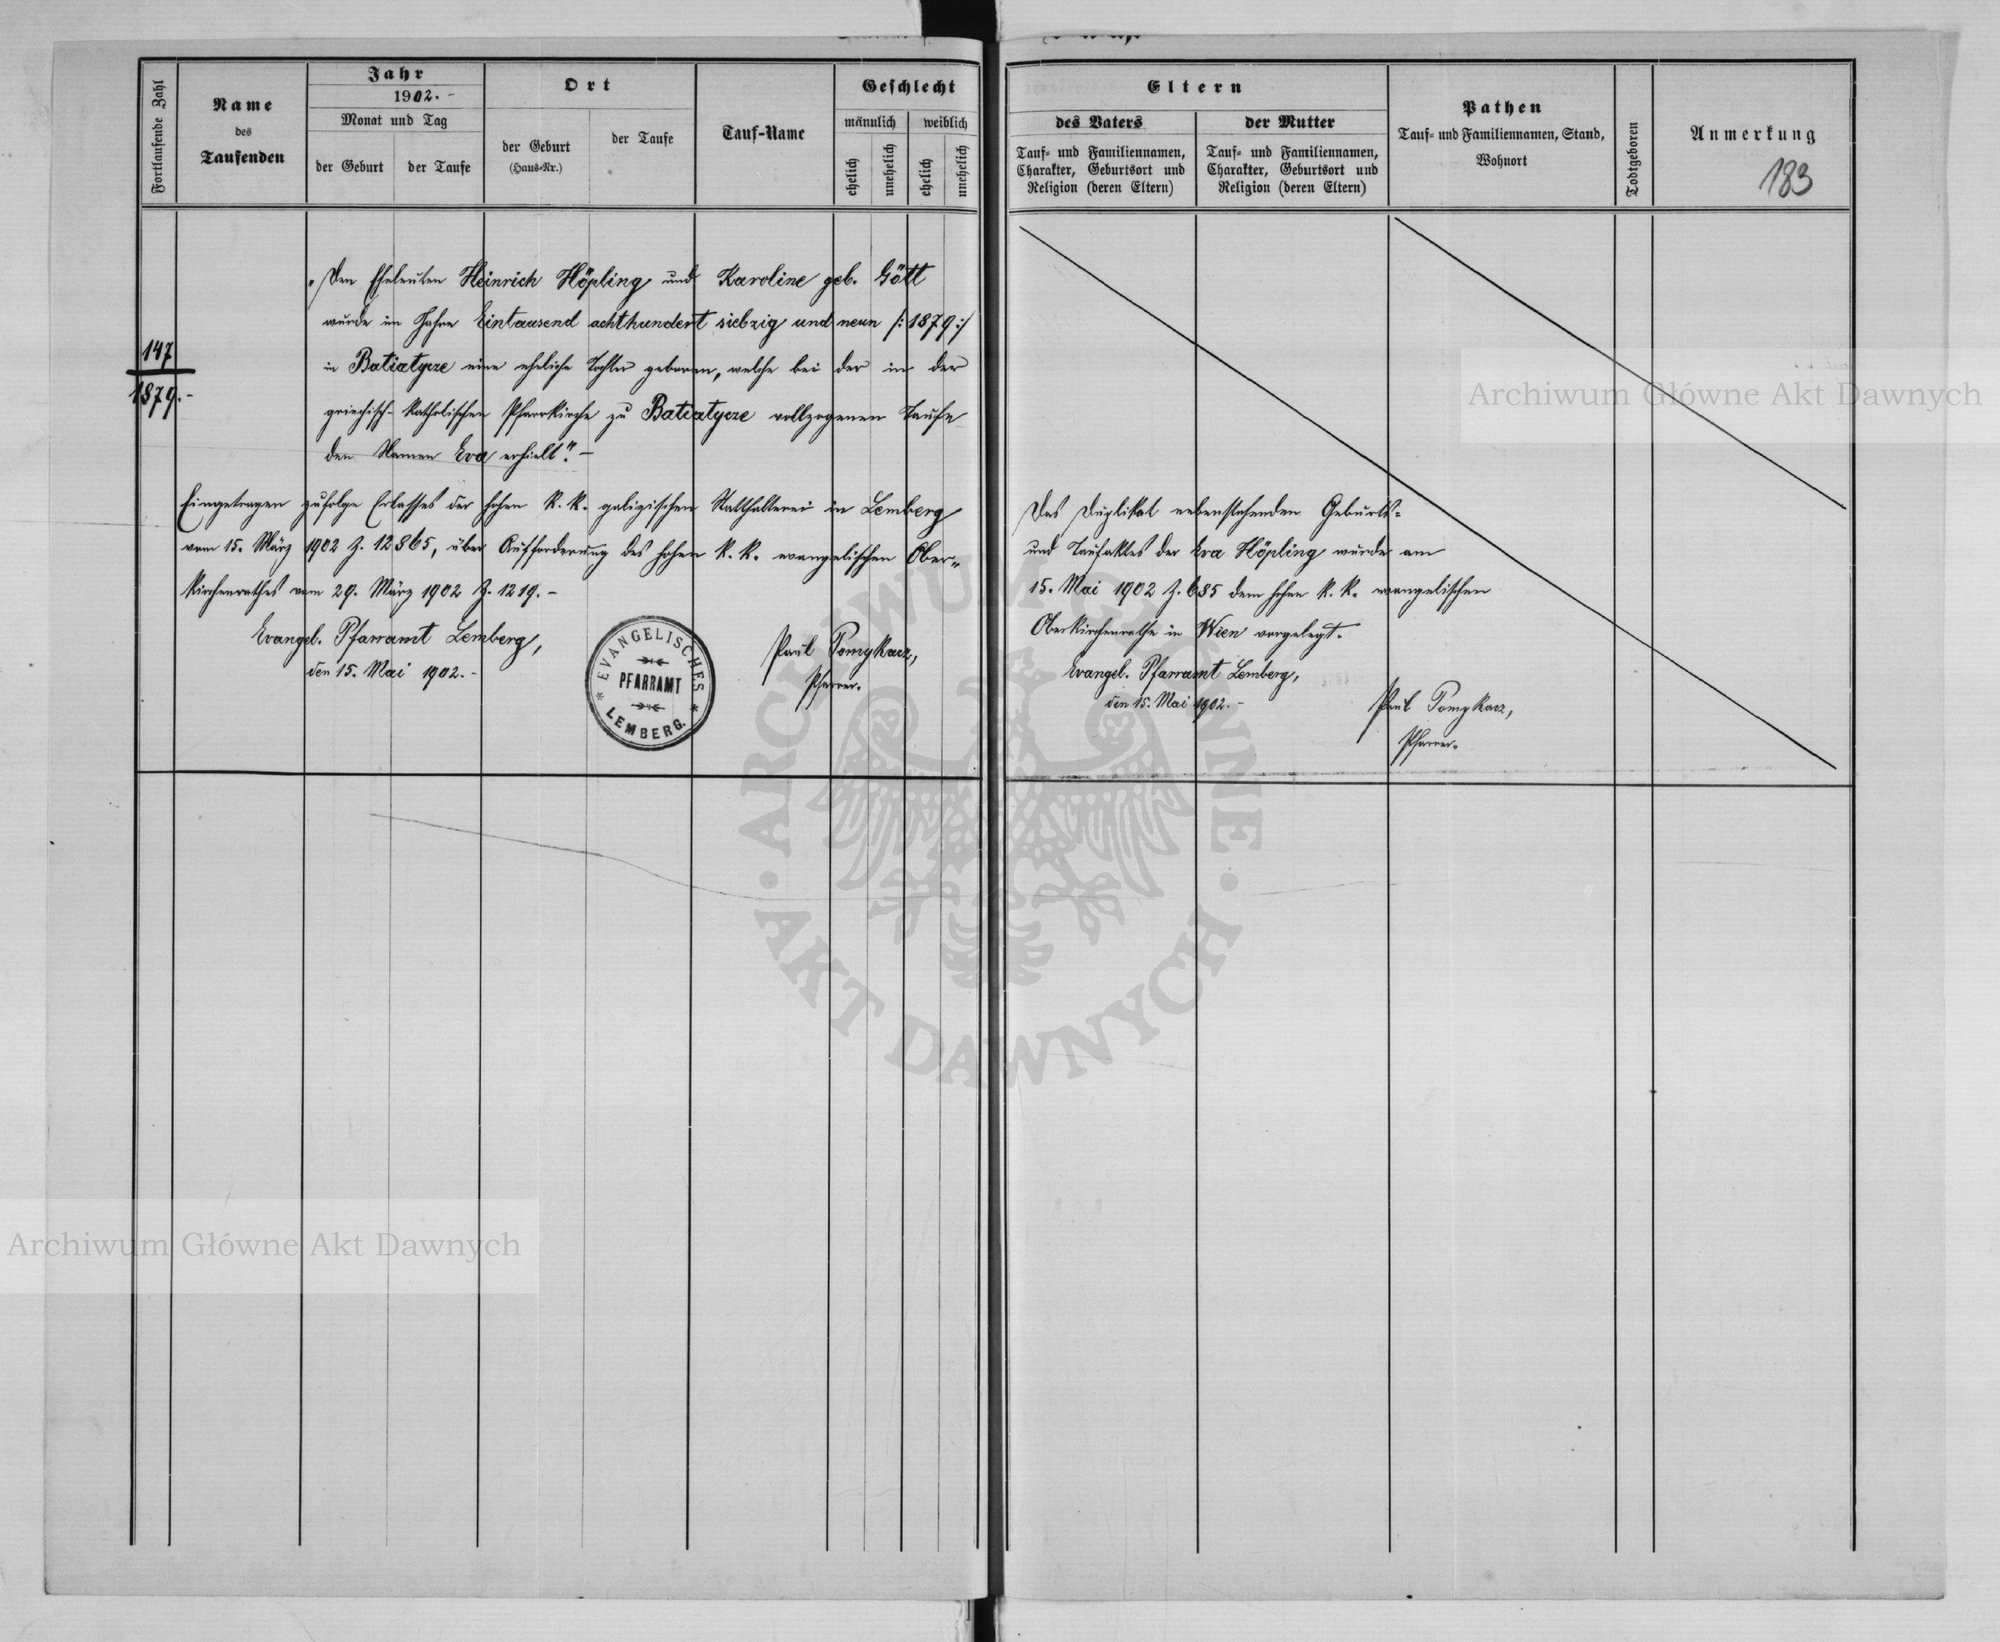 Fortlaufende Zahl
Name
des
Taufenden
Jahr
1902.-
Monat und Tag
der Geburt
der Taufe
Ort
der Geburt
(Haus-Nr.)
der Taufe
Tauf-Name
Geschlecht
männlich
weiblich
ehelich
unehelich
ehelich
unehelich
147
1879.-
"Den Eheleuten Heinrich Höpling und Karoline geb. Gött
wurde im Jahre Eintausend achthundert siebzig und neun /:1879:/
in Batiatycze eine eheliche Tochter geboren, welche bei der in der
griechisch-katholischen Pfarrkirche zu Batiatycze vollzogenen Taufe
den Namen Eva erhielt." -
Eingetragen zufolge Erlasses der hohen k. k. galizischen Statthalterei in Lemberg
vom 15. März 1902 Z. 12865, über Aufforderung des hohen k. k. evangelischen Ober-
kirchenrathes vom 29. März 1902 Z. 1219. -
Evangel. Pfarramt Lemberg,
den 15. Mai 1902. -
EVANGELISCHES
PFARRAMT
* LEMBERG. *
Paul Pomykacz,
Pfarrer.
Eltern
des Vaters
Tauf- und Familiennamen,
Charakter, Geburtsort und
Religion (deren Eltern)
der Mutter
Tauf- und Familiennamen,
Charakter, Geburtsort und
Religion (deren Eltern)
Pathen
Tauf- und Familiennamen, Stand,
Wohnort
Todtgeboren
Anmerkung
183
Das Duplikat nebenstehenden Geburts-
und Taufaktes der Eva Höpling wurde am
15. Mai 1902 Z. 685 dem hohen k. k. evangelischen
Oberkirchenrathe in Wien vorgelegt.
Evangel. Pfarramt Lemberg,
den 15. Mai 1902. -
Paul Pomykacz,
Pfarrer.
Archiwum Główne Akt Dawnych
ARCHIWUM GŁÓWNE
· AKT DAWNYCH ·
Archiwum Główne Akt Dawnych